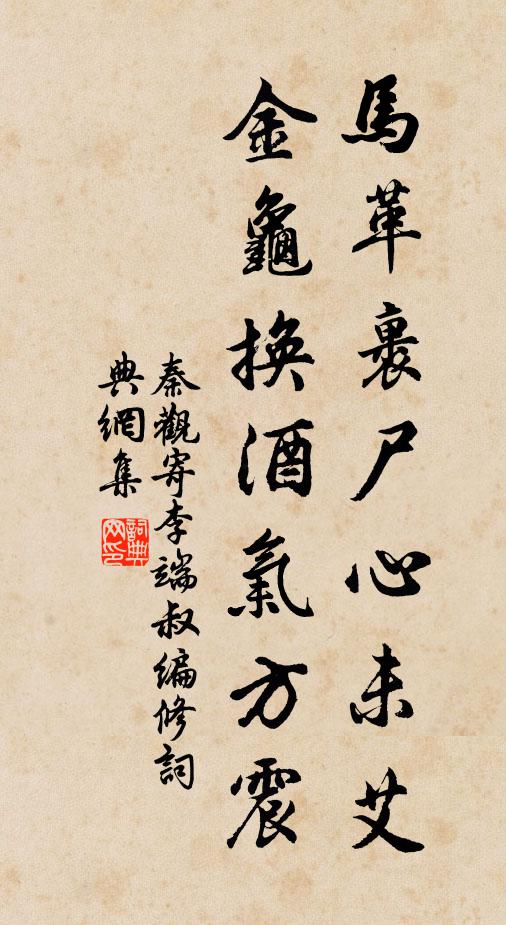 馬革裹尸心未艾
金龜換酒氣方震
秦觀寄李端叔編修詞
典網集
詞典網印